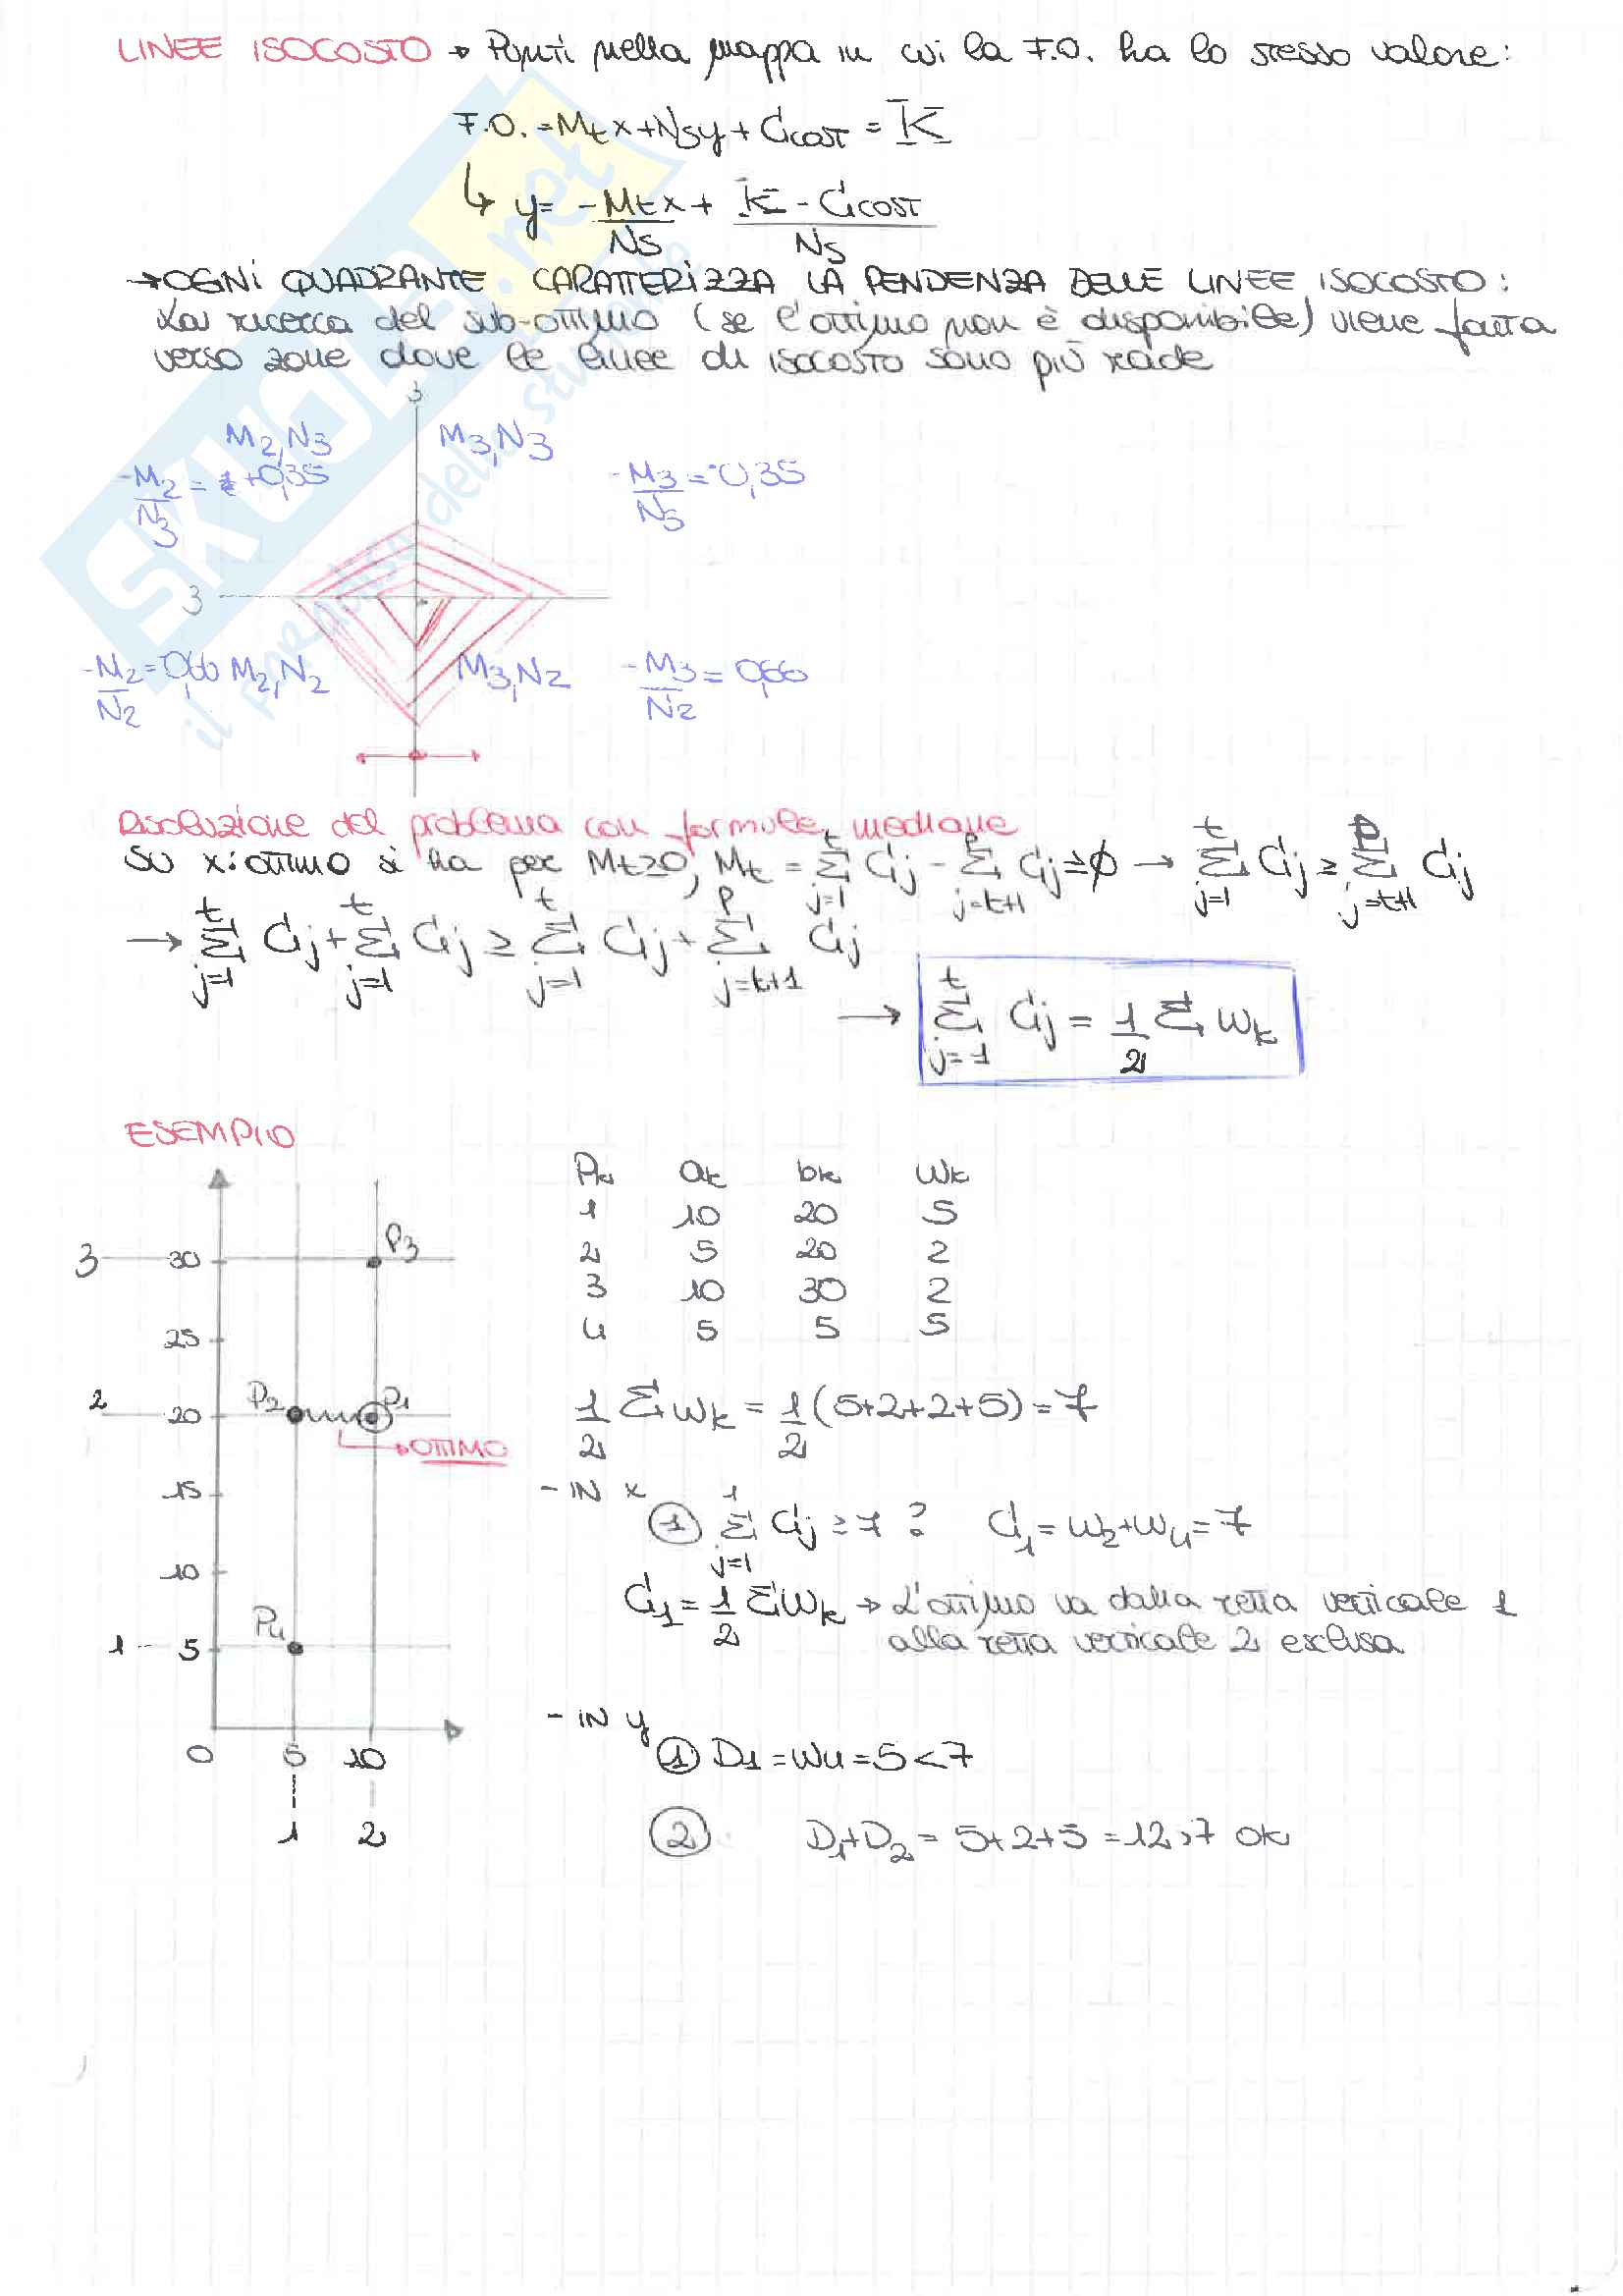 LINEE ISOCOSTO → Punti nella mappa in cui la F.O. ha lo stesso valore:
F.O. = Mt x + Ns y + Ccost = K
↳ y = -Mt/Ns x + (K - Ccost)/Ns
→ OGNI QUADRANTE CARATTERIZZA LA PENDENZA DELLE LINEE ISOCOSTO:
La ricerca del sub-ottimo (se l'ottimo non è disponibile) viene fatta
verso zone dove le linee di isocosto sono più rade
3
M2,N3 M3,N3
-M2/N3 = +0,35 -M3/N3 = -0,35
3
-M2/N2 = 0,66 M2,N2 M3,N2 -M3/N2 = 0,66
Risoluzione del problema con formule mediane
SU x: ottimo si ha per Mt≥0, Mt = Σ(j=1→t) Cj - Σ(j=t+1→p) Cj ≥ ∅ → Σ(j=1→t) Cj ≥ Σ(j=t+1→p) Cj
→ Σ(j=1→t) Cj + Σ(j=1→t) Cj ≥ Σ(j=1→t) Cj + Σ(j=t+1→p) Cj
→ Σ(j=1→t) Cj = 1/2 Σ wk
ESEMPIO
Pk ak bk wk
1 10 20 5
2 5 20 2
3 10 30 2
4 5 5 5
3 30 P3
25
2 20 P2 P1
OTTIMO
15
10
P4
1 5
0 5 10
1 2
1/2 Σ wk = 1/2 (5+2+2+5) = 7
- IN x
① Σ(j=1→1) Cj ≥ 7 ? C1 = w2+w4 = 7
C1 = 1/2 Σ wk → L'ottimo va dalla retta verticale 1
alla retta verticale 2 esclusa
- IN y
① D1 = w4 = 5 < 7
② D1+D2 = 5+2+5 = 12 > 7 ok
SKUOLA.net
il paradiso dello studente